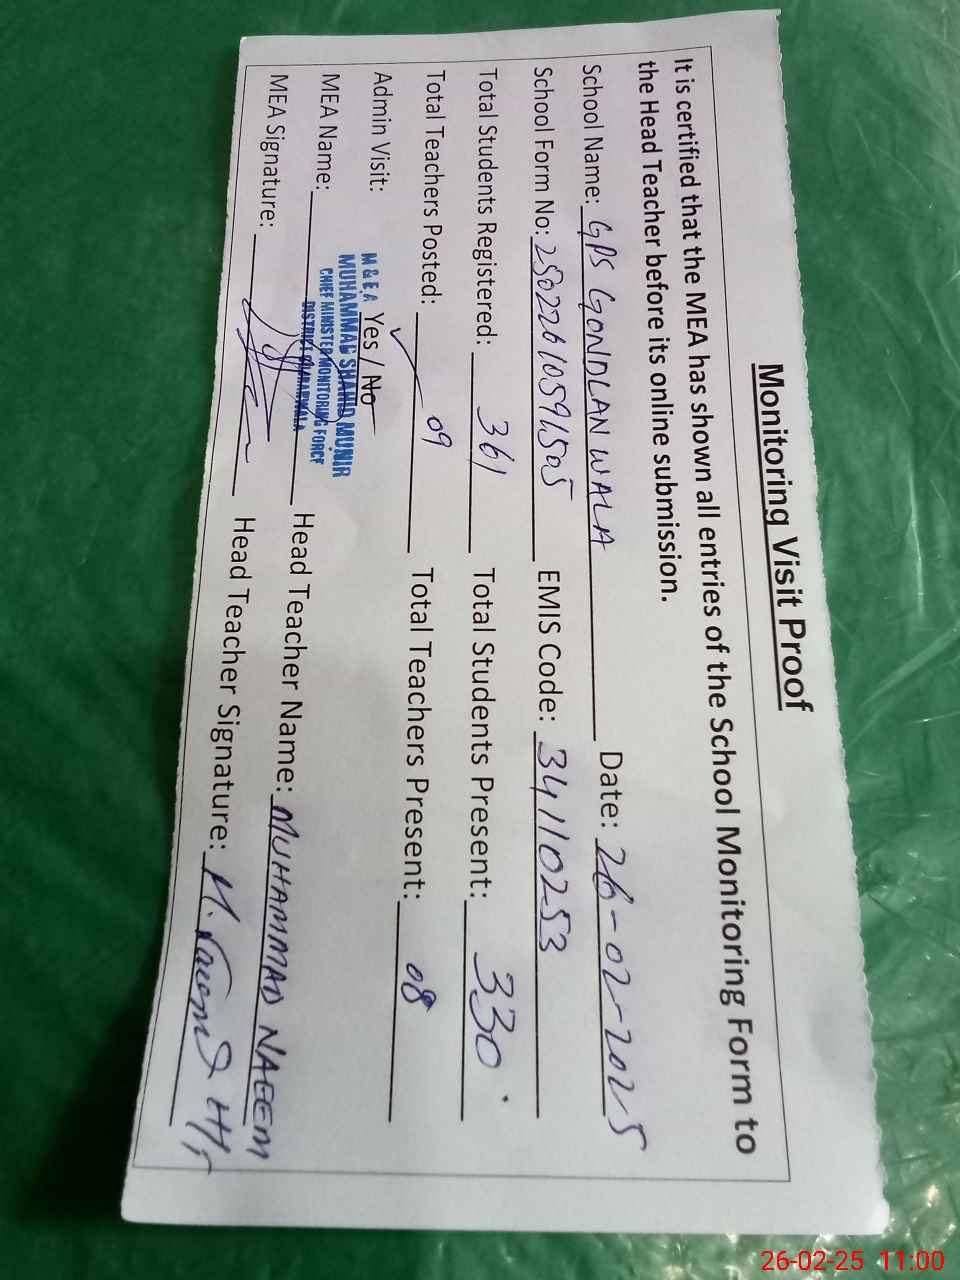 Monitoring Visit Proof
It is certified that the MEA has shown all entries of the School Monitoring Form to
the Head Teacher before its online submission.
School Name: GPS GONDLANWALA Date: 26-02-2025
School Form No: 25022610591505 EMIS Code: 34110253
Total Students Registered: 361 Total Students Present: 330
Total Teachers Posted: 09 Total Teachers Present: 08
Admin Visit: Yes / No
M & E A
MUHAMMAD SHAHID MUNIR
CHIEF MINISTER MONITORING FORCE
DISTRICT GUJRANWALA
MEA Name: Head Teacher Name: MUHAMMAD NAEEM
MEA Signature: Head Teacher Signature: M. Naeem HT
26-02-25 11:00